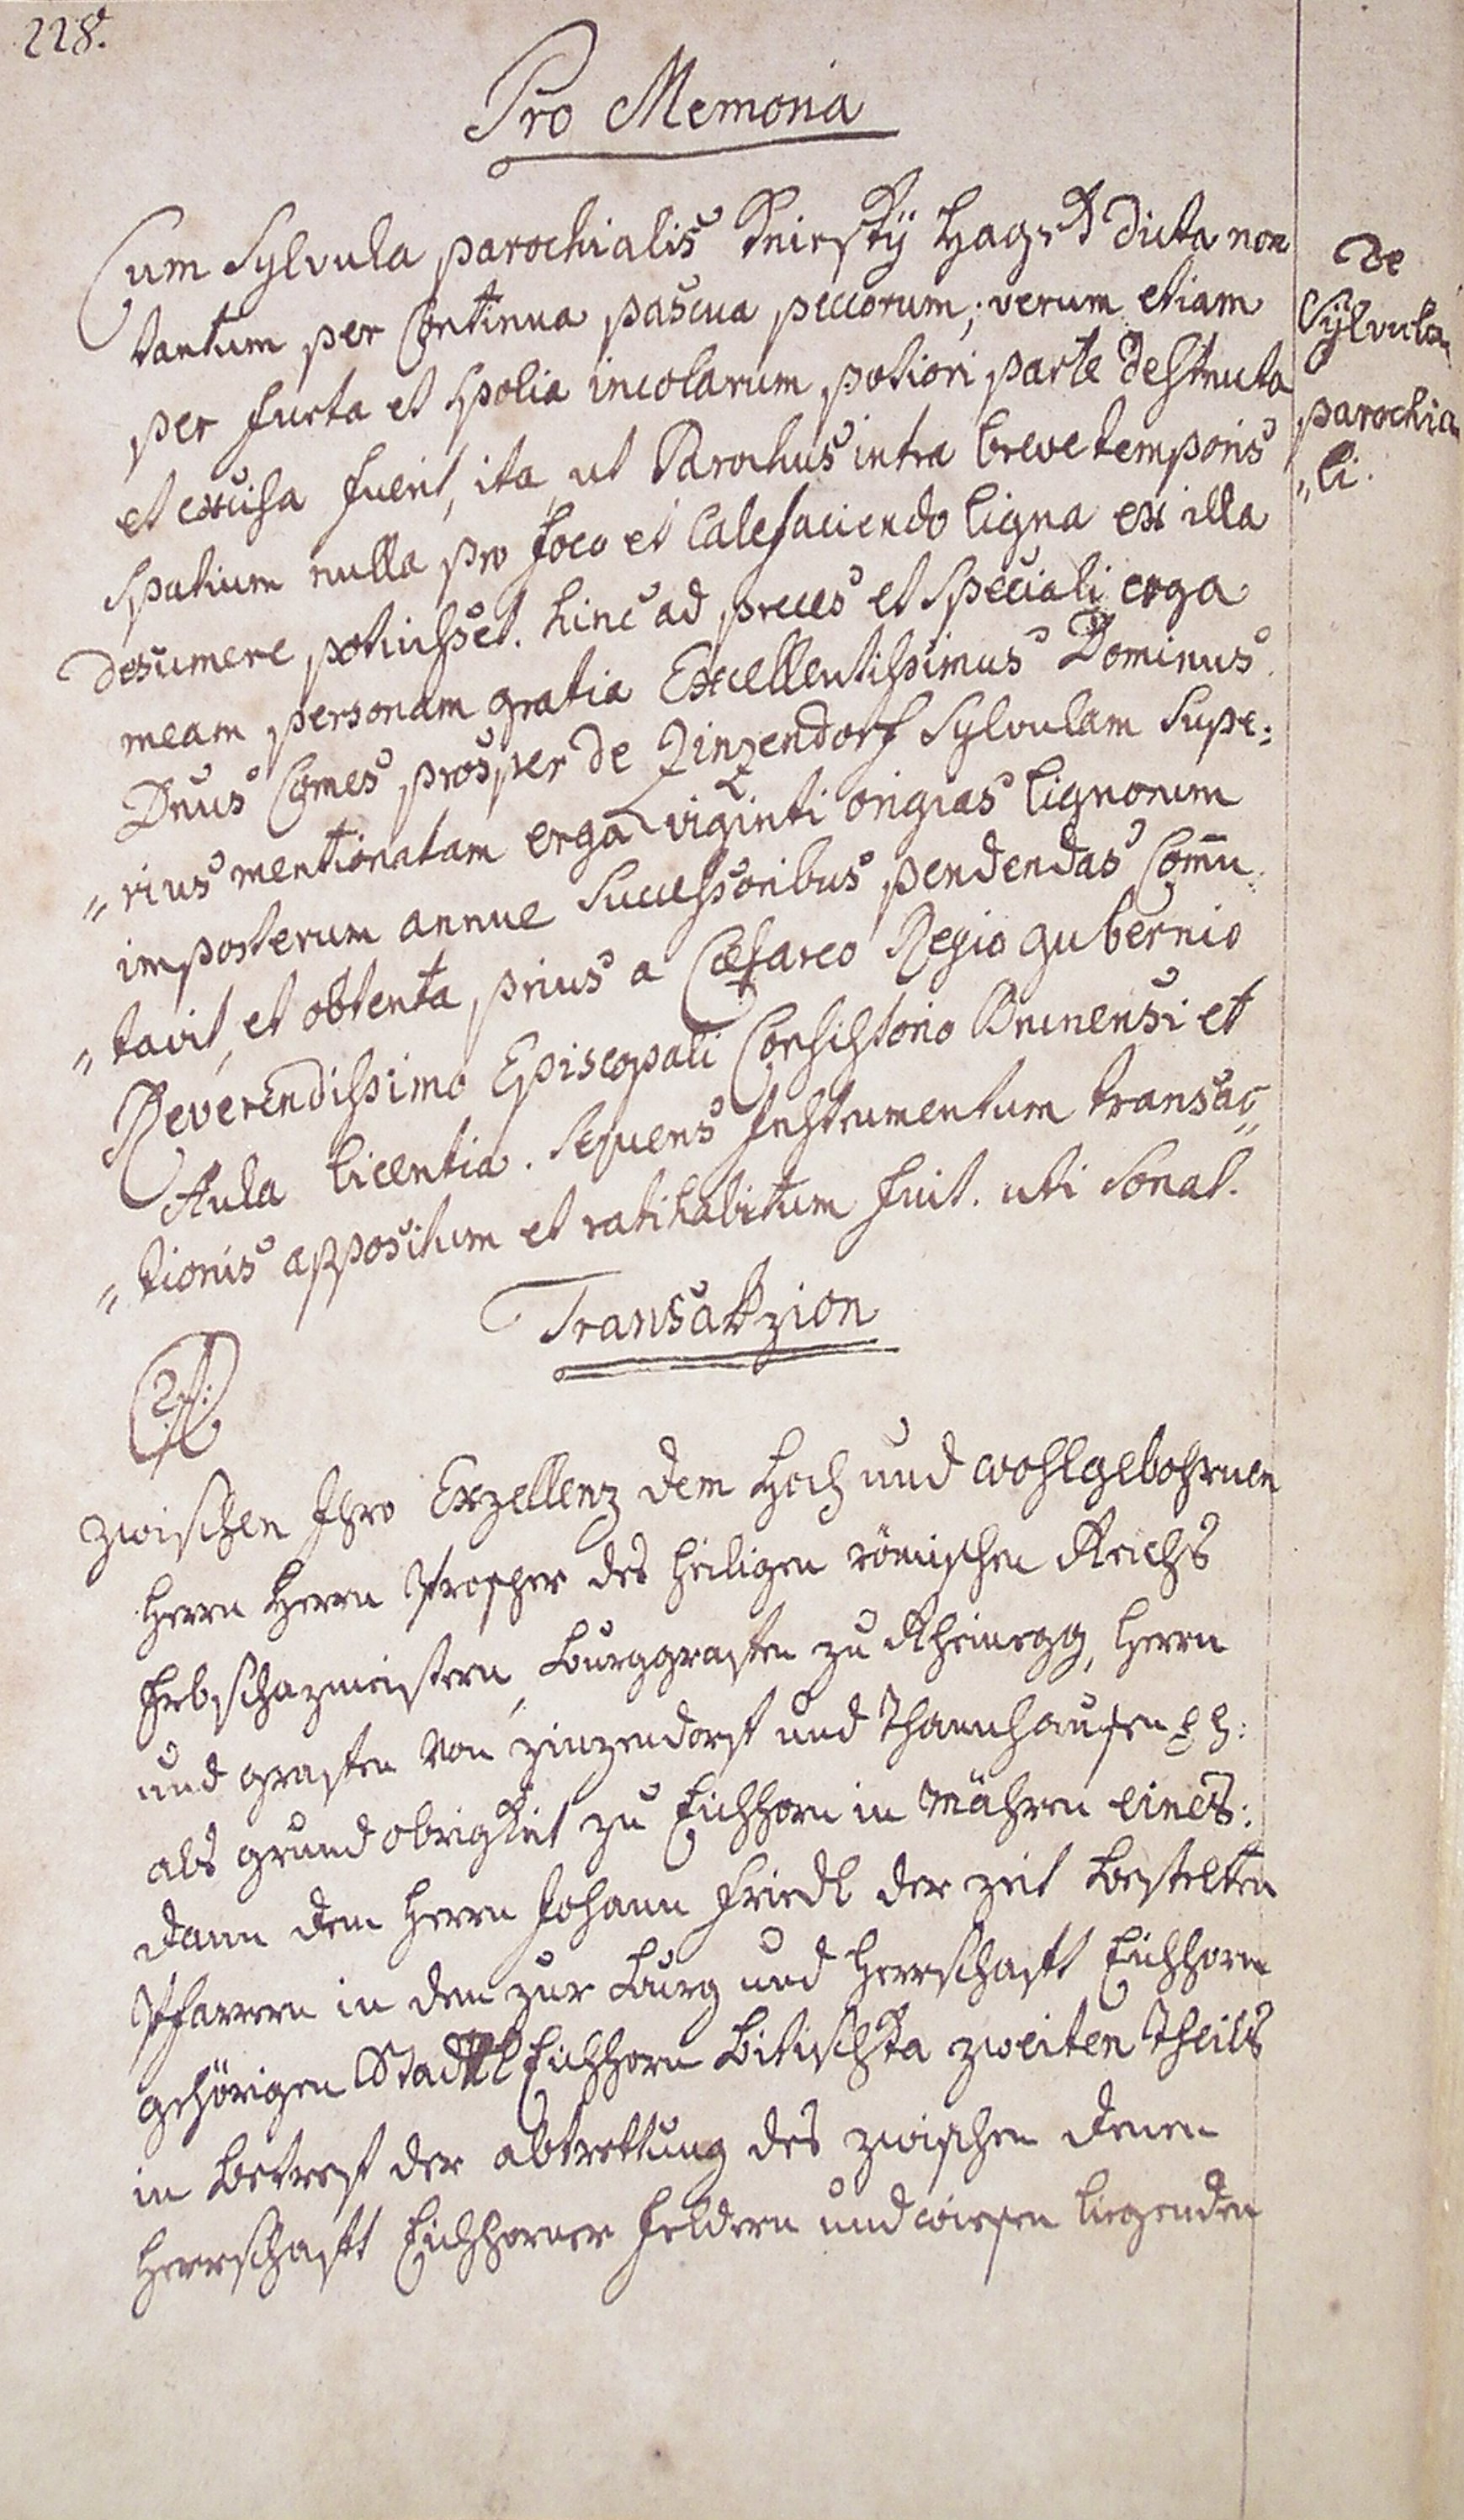 228.
Pro Memoria
Cum Sylvula parochialis Knirsky Hagek dicta non
tantum per Continua pascua peccorum; verum etiam
per furta et Spolia incolarum potiori parte destructa
et excisa fuerit, ita, ut Parochus intra breve temporis
Spatium nulla pro foco et Calefaciendo ligna ex illa
desumere potuisset. hinc ad preces et Speciali erga
meam personam gratia Excellentissimus Dominus
Dnus Comes prosper de Zinzendorf Sylvulam Supe:
„rius mentionatam erga viginti orgias lignorum
imposterum annue Successoribus pendendas Com̄u:
„tavit, et obtenta prius a Cæsareo Regio gubernio
Reverendissimo Episcopali Consistorio Brunensi et
Aula licentia. Sequens Instrumentum transac„
„tionis appositum et ratihabitum fuit. uti Sonat.
De
Sÿlvula
parochia„
„li.
Transakzion
zwischen Ihro Exzellenz dem Hoch und wohlgebohrnen
Herrn Herrn Prosper des heiligen römischen Reichs
Erbschazmeistern, Burggrafen zu Rheinegg, Herrn
und grafen von Zinzendorf und Thannhausen
als grundobrigkeit zu Eichhorn in Mähren eines:
dann dem Herrn Johann Friedl der zeit bestelten
Pfarrern in dem zur Burg und Herrschaft Eichhorn
gehörigen Stadtl Eichhorn Bitischka zweiten Theils
in betref der abtrettung des zwischen denen
Herrschaft Eichhorner Feldern und wiesen liegenden